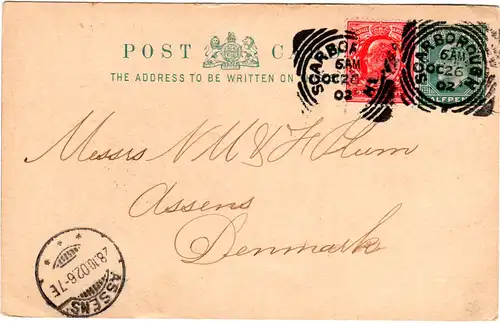 POST CA
THE ADDRESS TO BE WRITTEN ON
SCARBOROUGH
6 AM
OC 26
02
SCARBOROUGH
6 AM
OC 26
02
HALFPEN
Messrs N M & H Plum
Assens
Denmark
28.10.02.6-7E
ASSENS